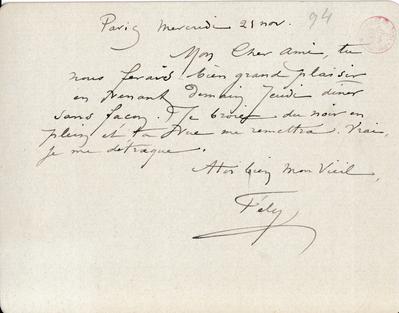 Paris mercredi 21 nov. 94
Mon Cher Ami, tu
nous ferais bien grand plaisir
en venant Demain Jeudi dîner
sans façon. Je broie du noir en
plein et ta vue me remettra. Vrai,
je me détraque.
A toi bien mon Vieil,
Fély